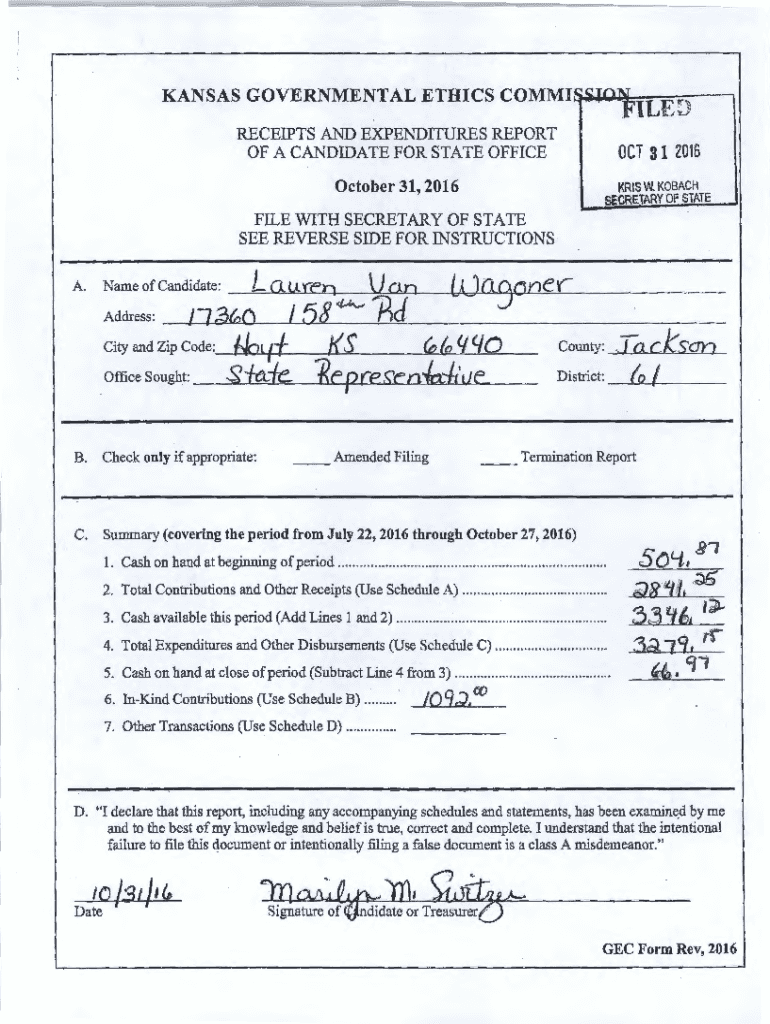 KANSAS GOVERNMENTAL ETHICS COMMISSION
FILED
RECEIPTS AND EXPENDITURES REPORT
OF A CANDIDATE FOR STATE OFFICE
OCT 31 2016
October 31, 2016
KRIS W. KOBACH
SECRETARY OF STATE
FILE WITH SECRETARY OF STATE
SEE REVERSE SIDE FOR INSTRUCTIONS
A. Name of Candidate: Lauren Van Wagoner
Address: 17360 158th Rd
City and Zip Code: Hoyt KS 66440 County: Jackson
Office Sought: State Representative District: 61
B. Check only if appropriate: ____ Amended Filing ____ Termination Report
C. Summary (covering the period from July 22, 2016 through October 27, 2016)
1. Cash on hand at beginning of period ........ 504.87
2. Total Contributions and Other Receipts (Use Schedule A) ........ 2841.25
3. Cash available this period (Add Lines 1 and 2) ........ 3346.12
4. Total Expenditures and Other Disbursements (Use Schedule C) ........ 3279.15
5. Cash on hand at close of period (Subtract Line 4 from 3) ........ 66.97
6. In-Kind Contributions (Use Schedule B) ......... 1092.00
7. Other Transactions (Use Schedule D) .............. ____
D. "I declare that this report, including any accompanying schedules and statements, has been examined by me
and to the best of my knowledge and belief is true, correct and complete. I understand that the intentional
failure to file this document or intentionally filing a false document is a class A misdemeanor."
10/31/16 Marilyn M. Switzer
Date Signature of Candidate or Treasurer
GEC Form Rev, 2016